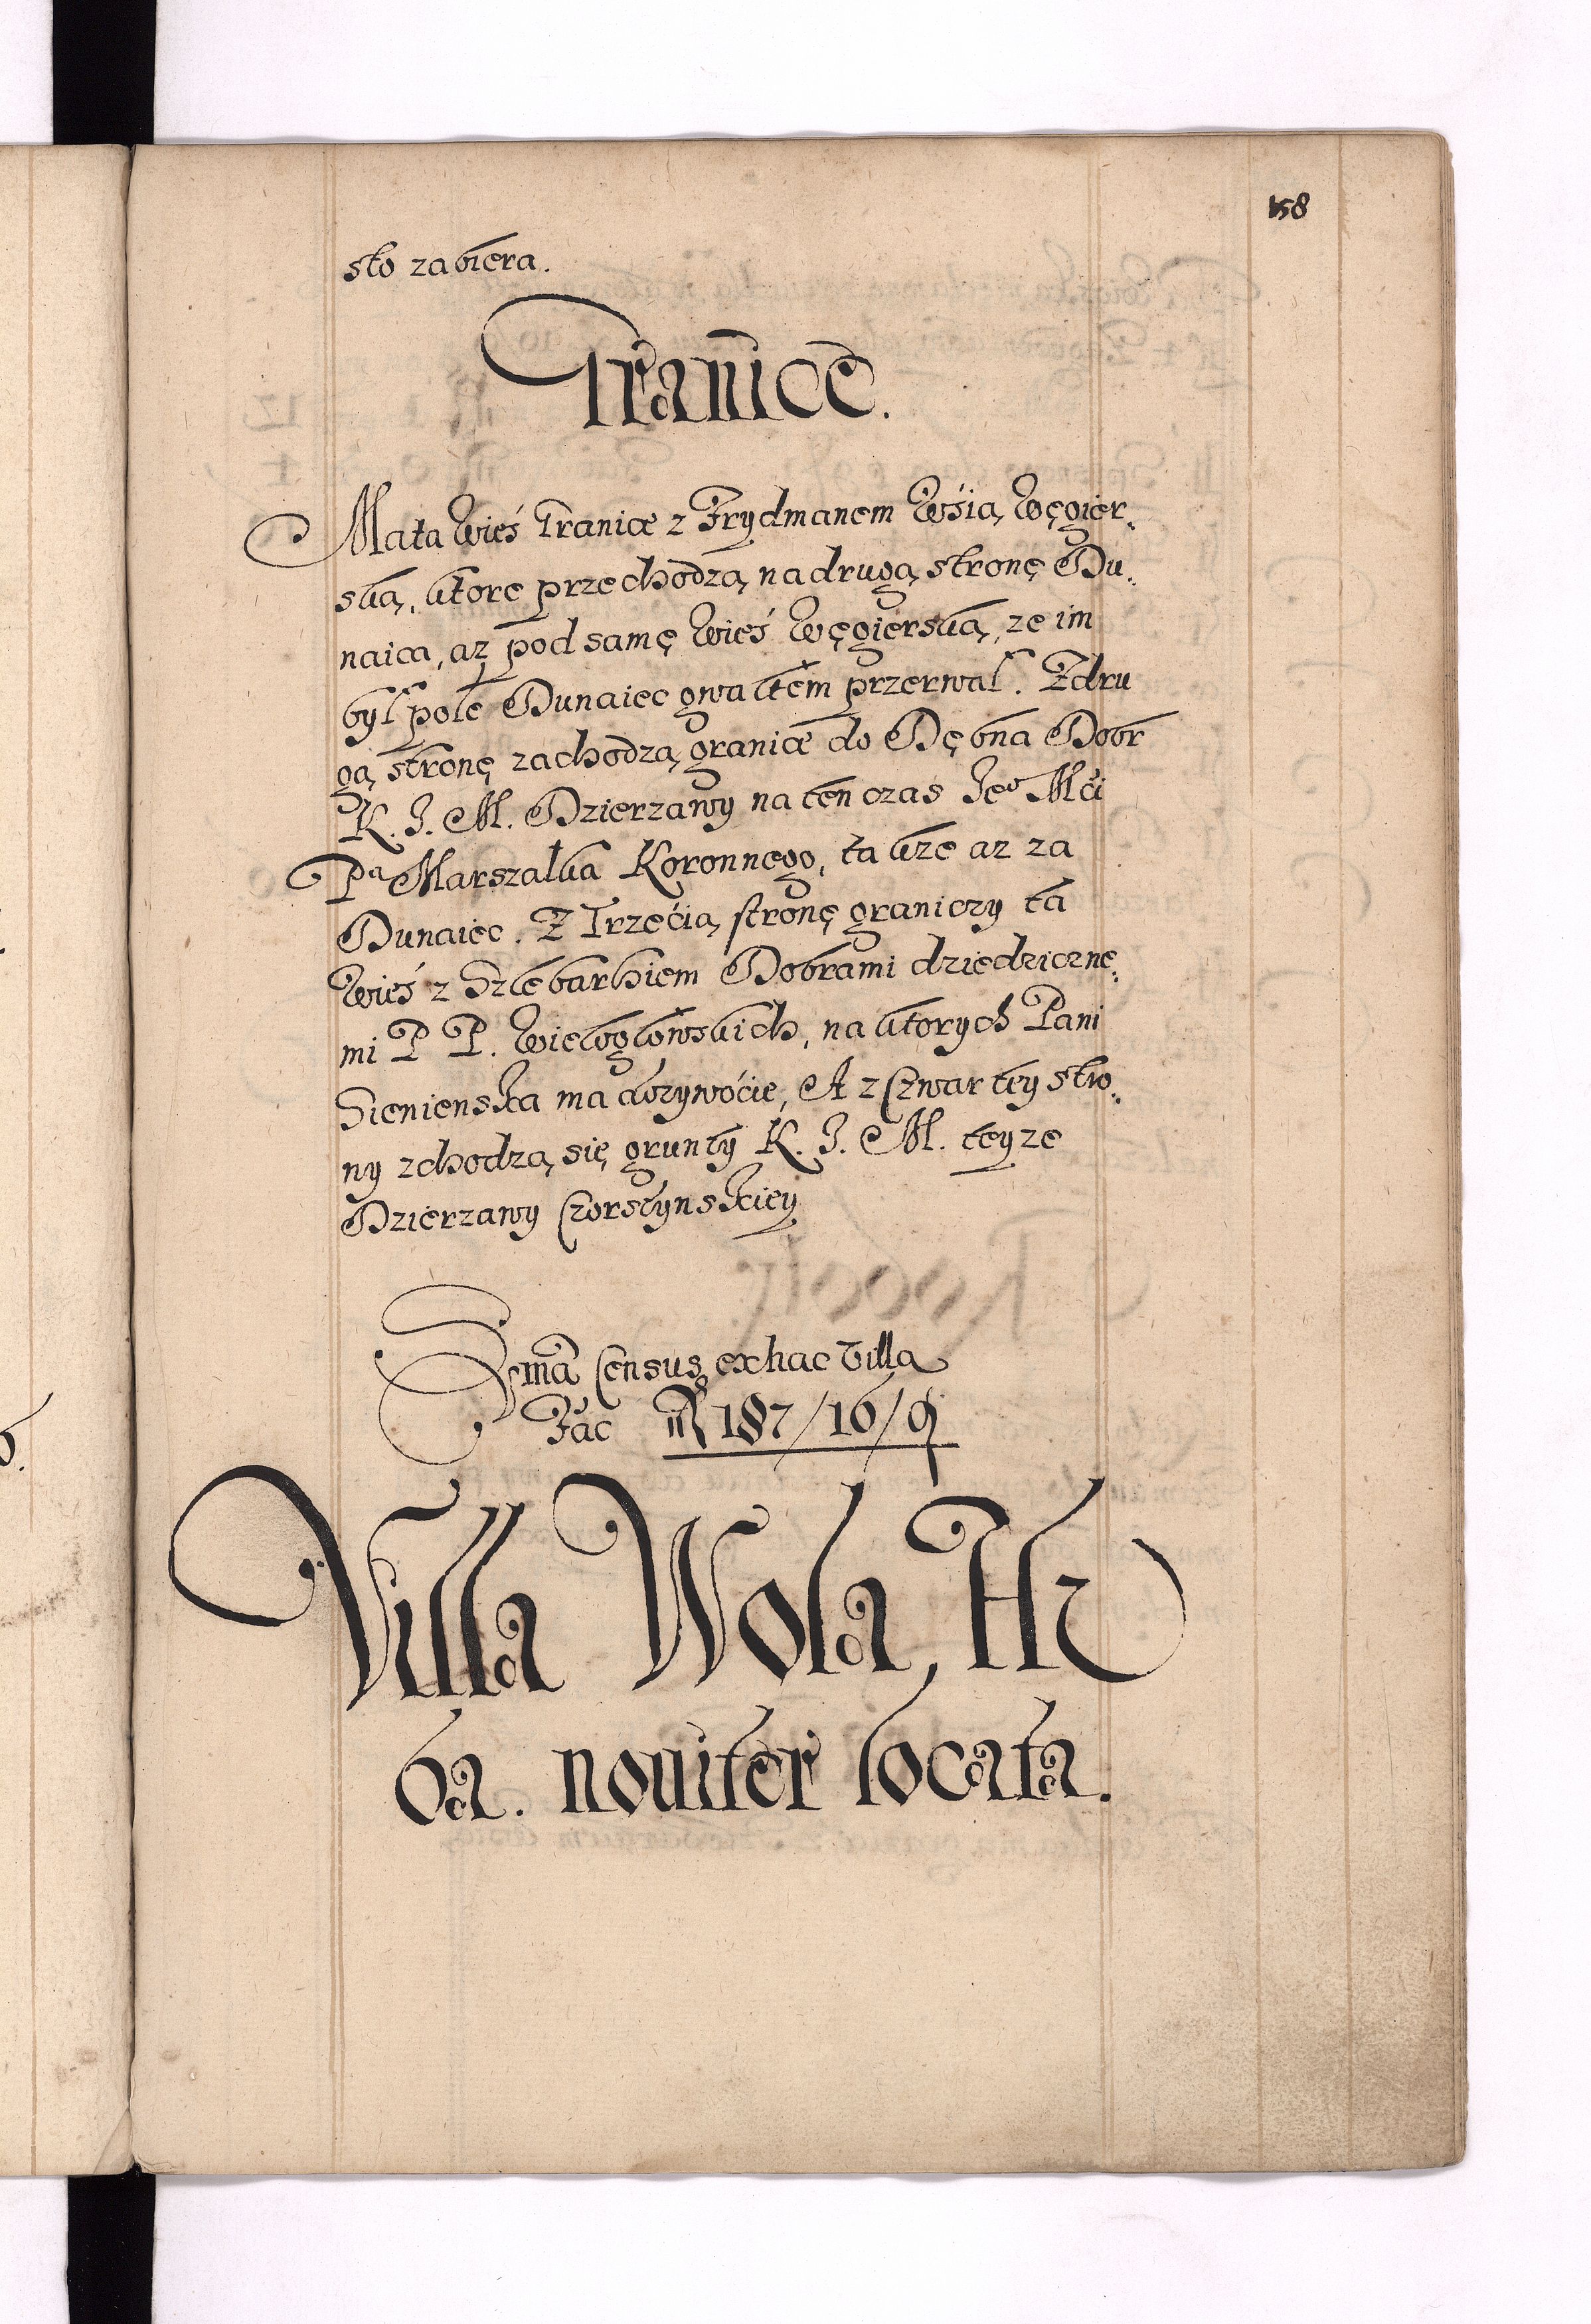 158
sto zabiera.
Granice.
Ma ta Wieś Granice z Frydmanem Wsią Węgier-
ską, ktore przechodzą na drugą stronę Du-
naica, az pod samę Wieś Węgierską, ze im
był pole Dunaiec gwałtem przerwał. Z dru
gą stronę zachodzą granice do Dębna Dobr
K. J. M. Dzierzawy na ten czas Jeo Mći
Pa Marszałka Koronnego, takze az za
Dunaiec. Z Trzecią stronę graniczy ta
Wieś z Szlebarkiem Dobrami dziedziczne-
mi P P. Wielogłowskich, na ktorych Pani
Sienienska ma dozywócie, A z Czwartey stro-
ny zchodzą się grunty K. J. M. teyze
Dzierzawy Czorstynskiey
Sma Census ex hac Villa
Fac 187/16/9
Villa Wola, Hr
ba. nouiter locata.